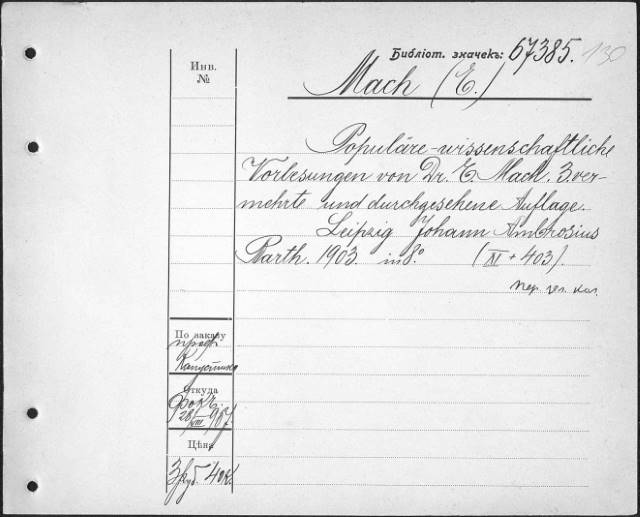 Библіот. значекъ: 67385. 130
Инв. №
Mach (E.)
Populäre-wissenschaftliche
Vorlesungen von Dr. E. Mach. 3. ver-
mehrte und durchgesehene Auflage.
Leipzig Johann Ambrosius
Barth. 1903. in 8.° (XI + 403).
По заказу
проф.
Откуда
28/VIII 907
Цѣна
3 руб. 40 к.